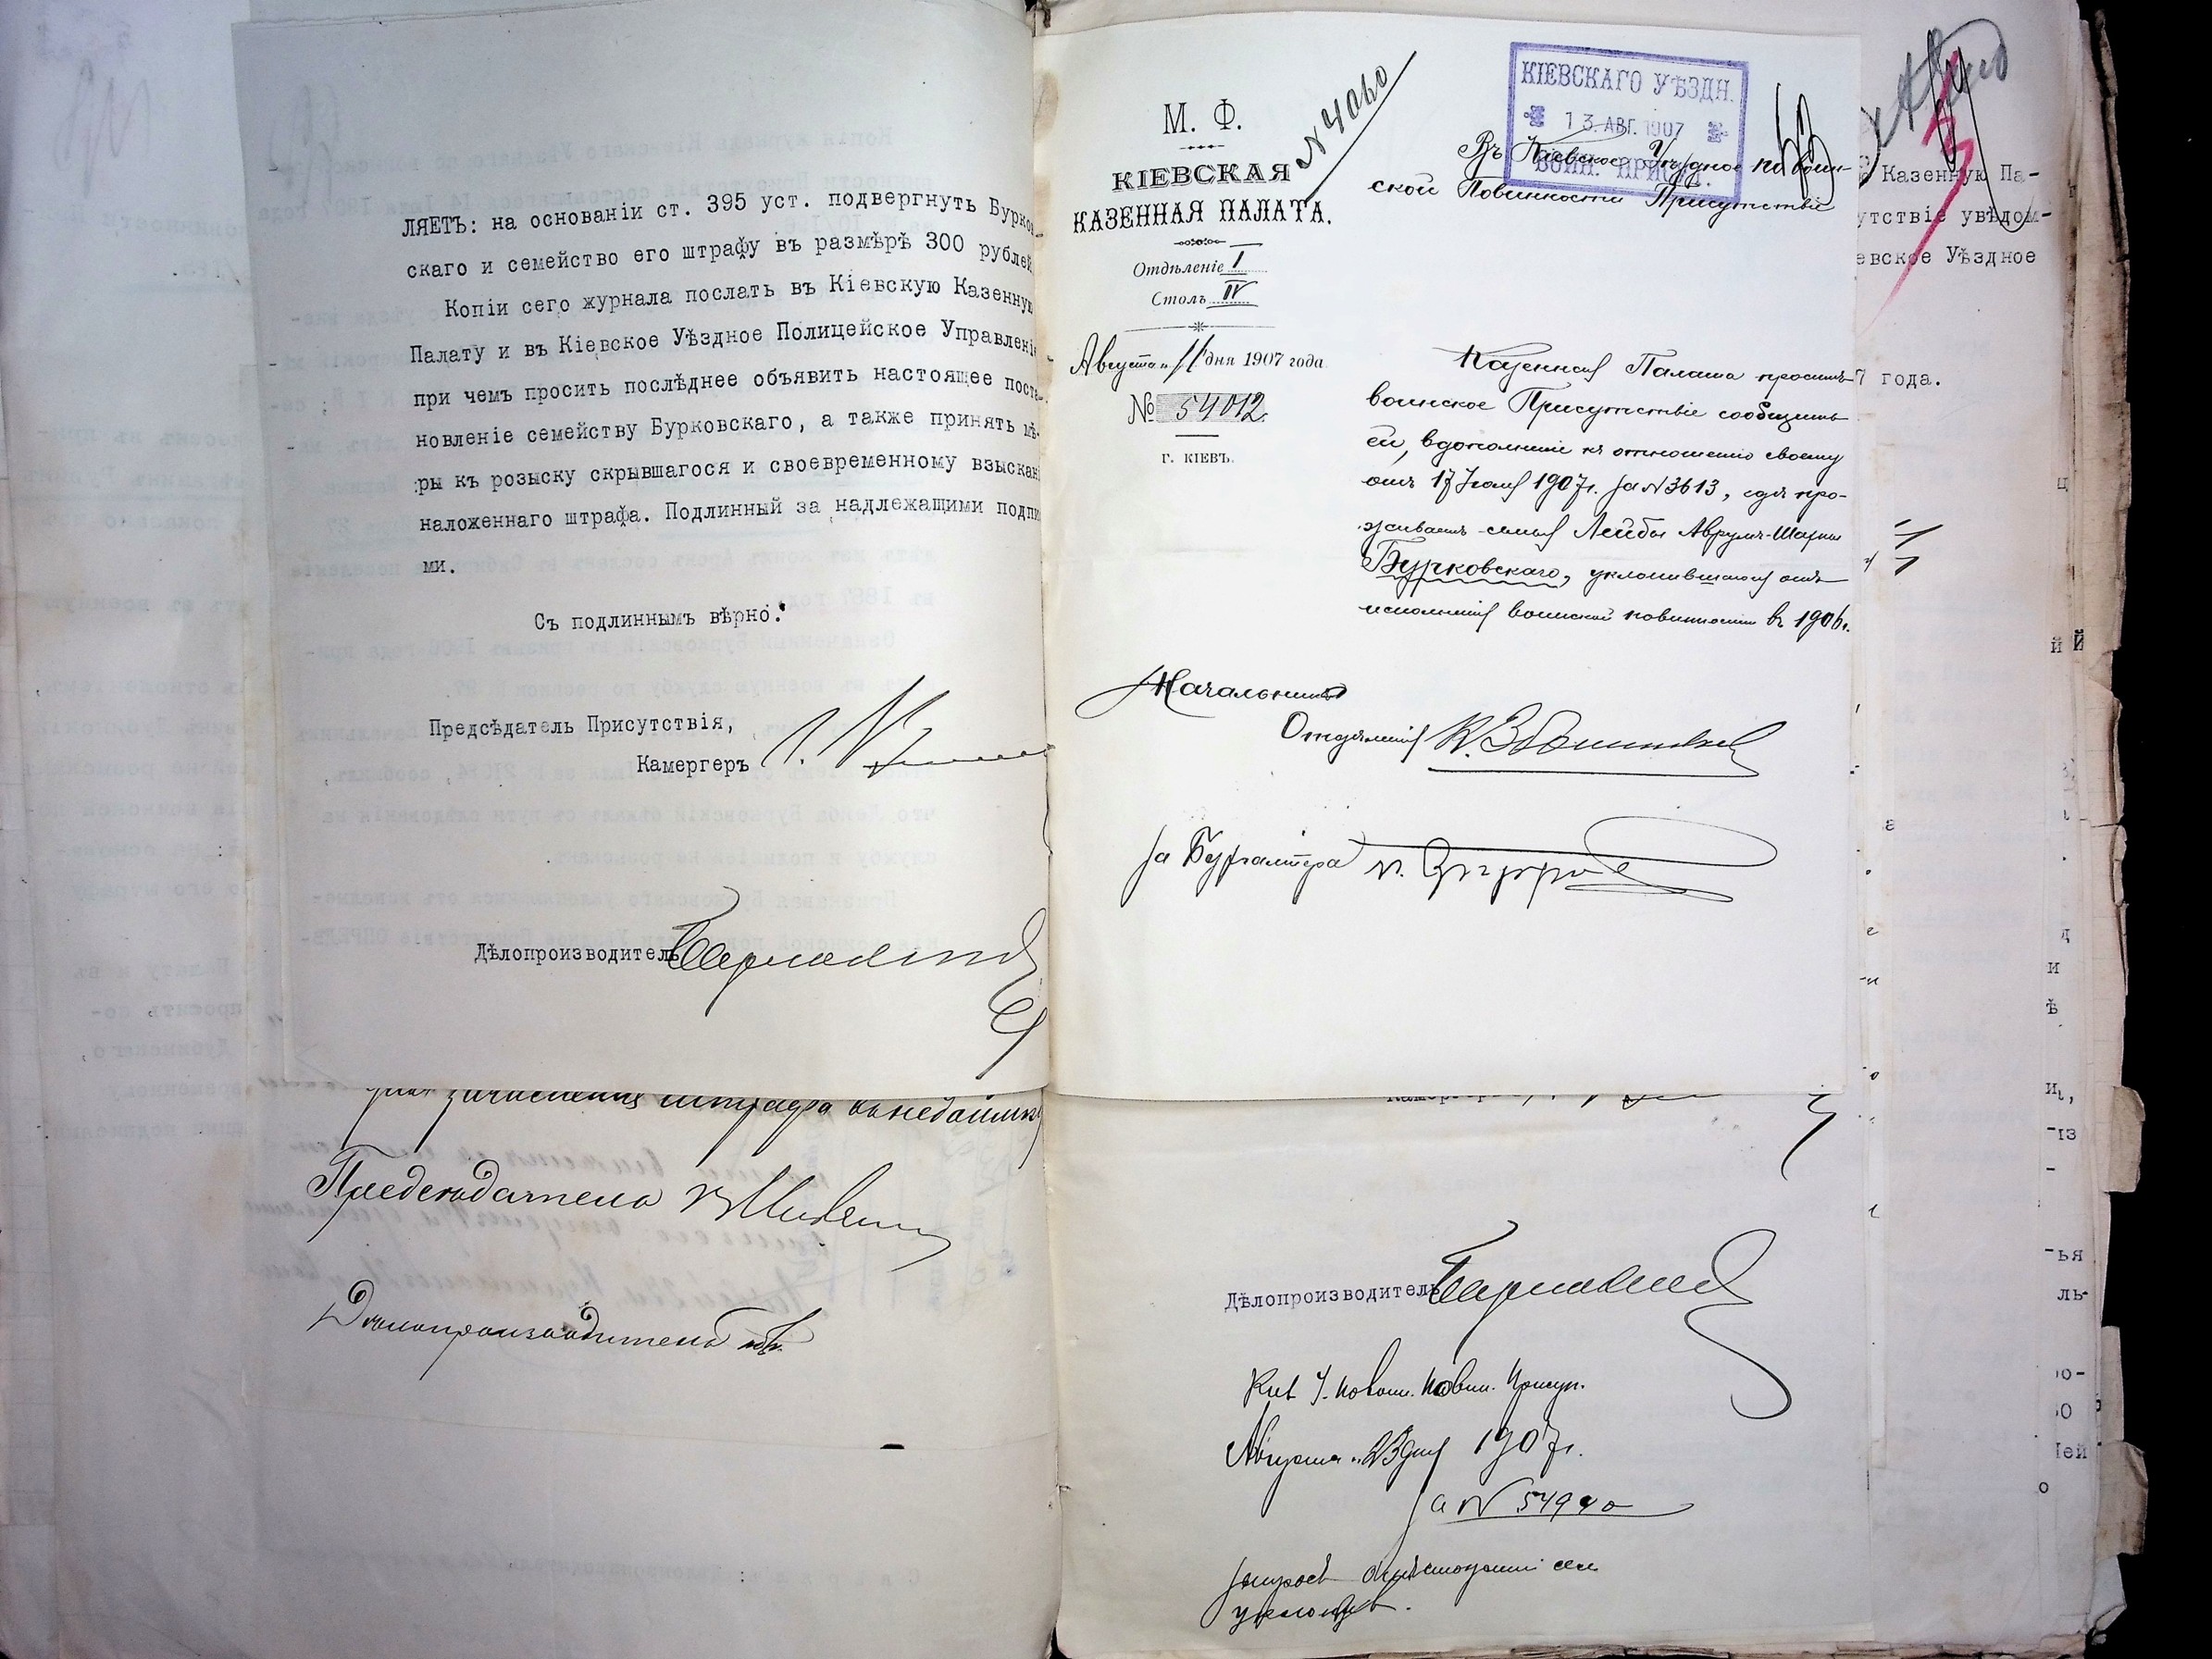 ЛЯЕТЪ: на основаніи ст. 395 уст. подвергнуть Бурков-
скаго и семейство его штрафу въ размѣрѣ 300 рублей
Копіи сего журнала послать въ Кіевскую Казенную
Палату и въ Кіевское Уѣздное Полицейское Управлені
при чемъ просить послѣднее объявить настоящее поста-
новленіе семейству Бурковскаго, а также принять мѣ-
ры къ розыску скрывшагося и своевременному взыскан
наложеннаго штрафа. Подлинный за надлежащими подпи
ми.
Съ подлиннымъ вѣрно:
Предсѣдатель Присутствія,
Камергеръ
Дѣлопроизводитель
зачисленія штрафа въ недоимку
Предсѣдатель
Дѣлопроизводитель
М. Ф.
КІЕВСКАЯ
КАЗЕННАЯ ПАЛАТА.
Отдѣленіе I
Столъ IV
Августа „11" дня 1907 года
№ 54012.
г. КІЕВЪ.
N 4060
КІЕВСКАГО УѢЗДН.
13. АВГ. 1907
ВОИН. ПРИСУТ.
Въ Кіевское Уѣздное по воин-
ской Повинности Присутствіе
Казенная Палата проситъ
воинское Присутствіе сообщить
ей, въ дополненіе къ отношенію своему
отъ 17 Іюля 1907 г. за N 3613, гдѣ про-
живаетъ семья Лейбы Аврумъ-Шарны
Бурковскаго, уклонившагося отъ
исполненія воинской повинности въ 1906 г.
Начальникъ
Отдѣленія
за Бухгалтера
Дѣлопроизводитель
Кіев У. по воин. повин. Присут.
Августа „23 дня 1907 г.
за N 54990
Казенную Па-
утствіе увѣдом-
евское Уѣздное
7 года.